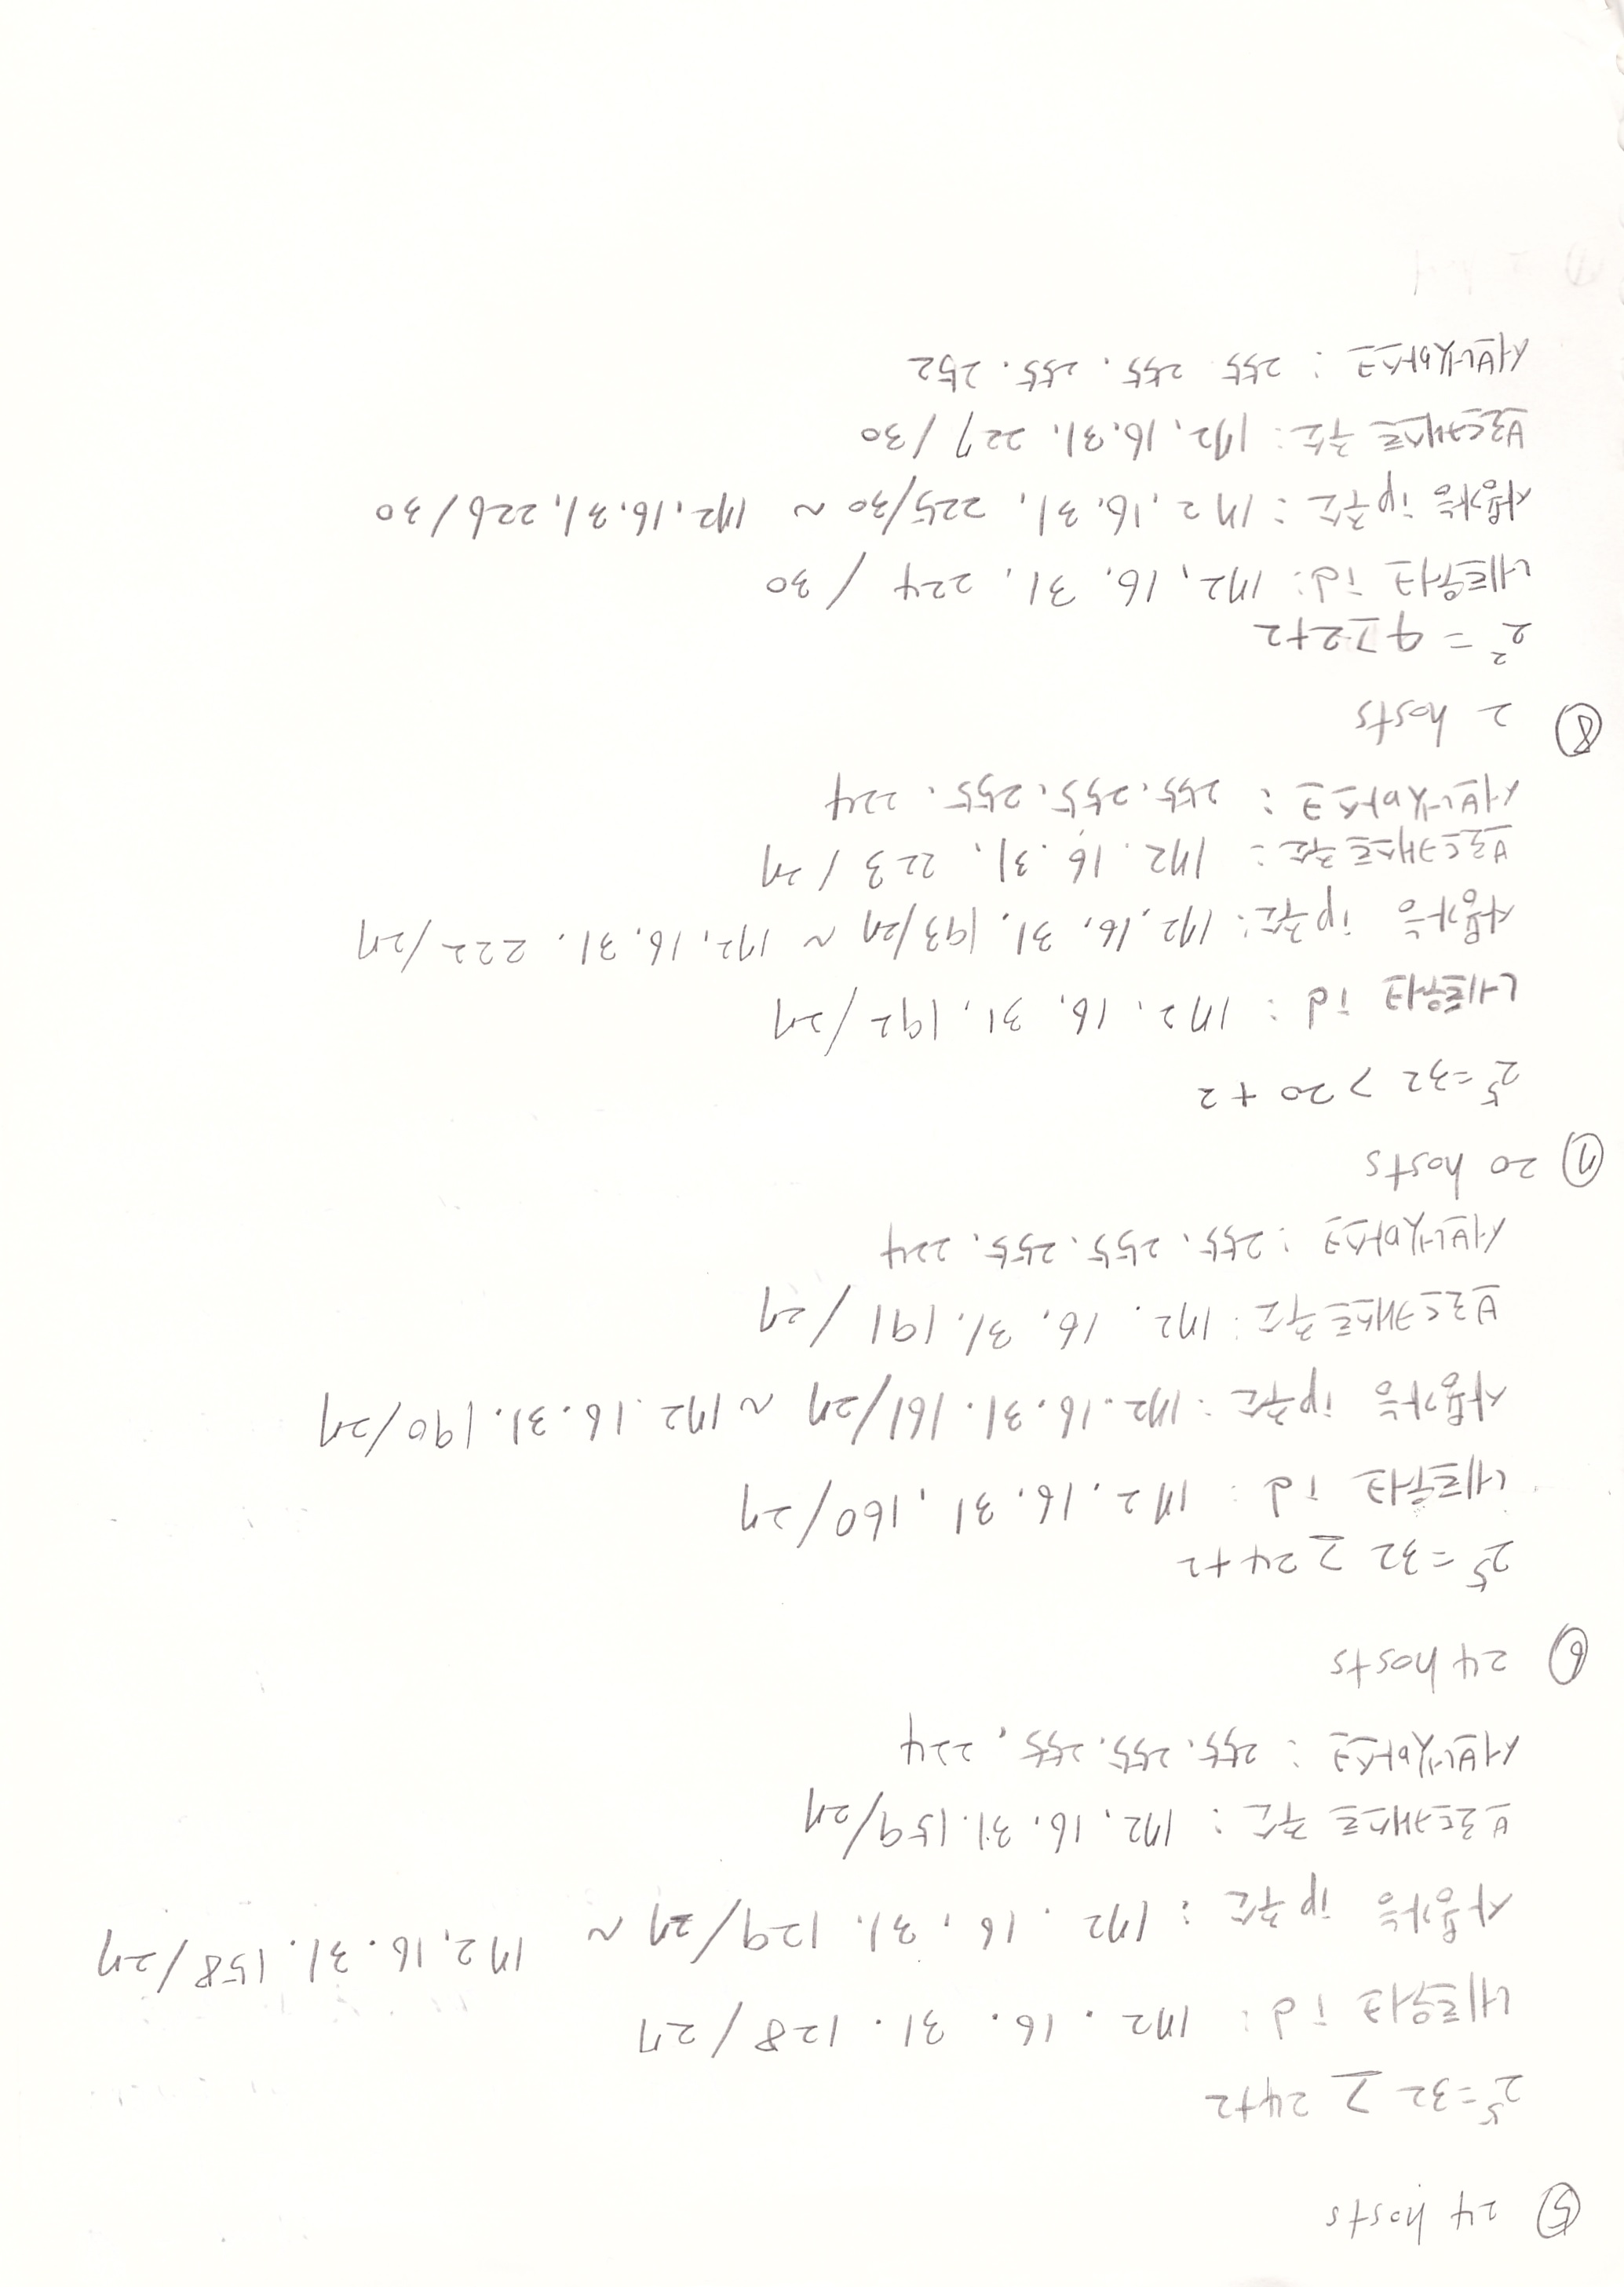 ⑤ 24 hosts
2⁵=32 ≥ 24+2
네트워크 id : 172 . 16 . 31 . 128 / 27
사용가능 ip 주소 : 172 . 16 . 31 . 129/27 ~ 172.16.31.158/27
브로드캐스트 주소 : 172.16.31.159/27
서브넷마스크 : 255.255.255.224
⑥ 24 hosts
2⁵=32 ≥ 24+2
네트워크 id : 172.16.31.160/27
사용가능 ip주소 : 172.16.31.161/27 ~ 172.16.31.190/27
브로드캐스트주소 : 172.16.31.191 /27
서브넷마스크 : 255.255.255.224
⑦ 20 hosts
2⁵=32 > 20 + 2
네트워크 id : 172.16.31.192/27
사용가능 ip주소: 172.16.31.193/27 ~ 172.16.31.222/27
브로드캐스트주소 : 172.16.31.223 / 27
서브넷마스크 : 255.255.255.224
⑧ 2 hosts
2² = 4≥2+2
네트워크 id: 172.16.31.224 / 30
사용가능 ip주소 : 172.16.31.225/30 ~ 172.16.31.226/30
브로드캐스트 주소: 172.16.31.227 /30
서브넷마스크 : 255 255.255.252